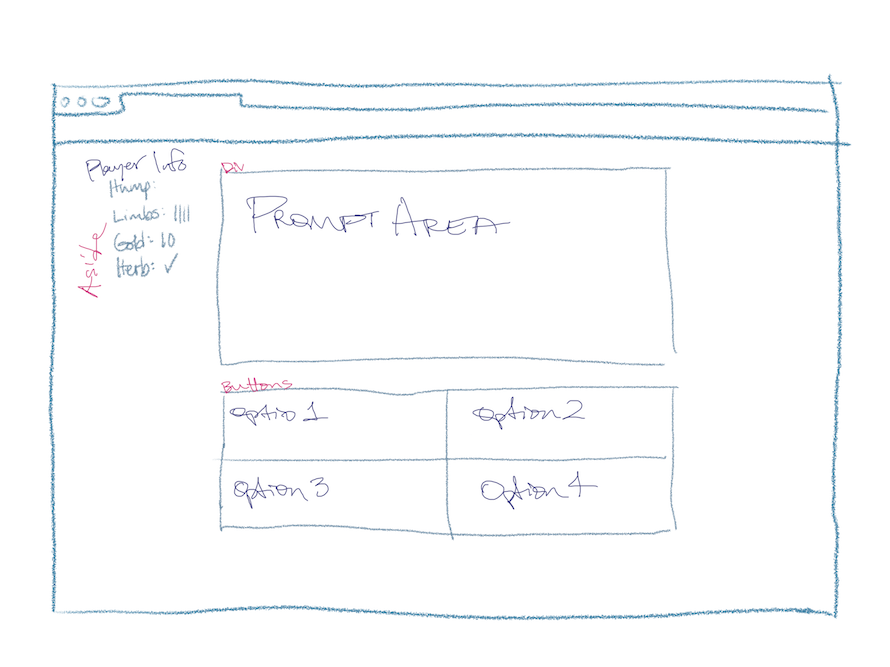 Player Info
Hump:
Limbs: ||||
Gold: 10
Herb: ✓
Aside
DIV
PROMPT AREA
Buttons
Optio 1
Option 2
Option 3
Option 4